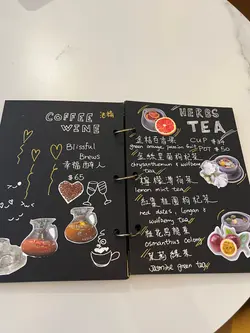 COFFEE
WINE
Blissful
Brews
幸福醉人
$65
HERBS
TEA
CUP $39
POT $50
green orange, passion fruit
chrysanthemum & wolfberry
tea
檸檬薄荷茶
lemon mint tea
紅棗桂圓枸杞茶
red dates, longan &
wolfberry tea
桂花烏龍茶
osmanthus oolong
茉莉綠茶
Jasmine green tea